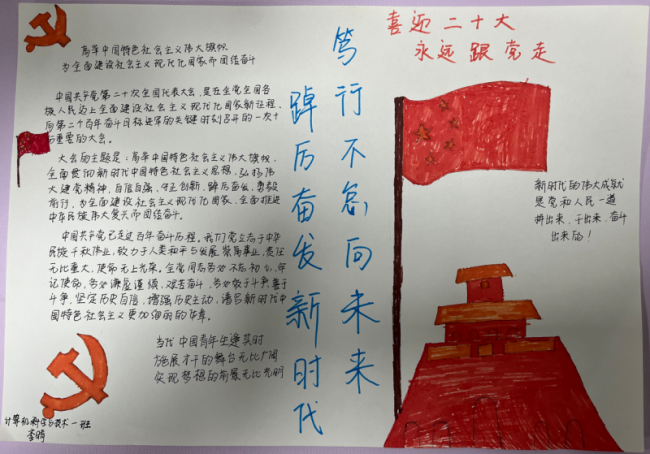 高举中国特色社会主义伟大旗帜
为全面建设社会主义现代化国家而团结奋斗
中国共产党第二十次全国代表大会，是在全党全国各
族人民迈上全面建设社会主义现代化国家新征程，
向第二个百年奋斗目标进军的关键时刻召开的一次十
分重要的大会。
大会的主题是：高举中国特色社会主义伟大旗帜，
全面贯彻新时代中国特色社会主义思想，弘扬伟
大建党精神，自信自强，守正创新，踔厉奋发，勇毅
前行，为全面建设社会主义现代化国家，全面推进
中华民族伟大复兴而团结奋斗。
中国共产党已走过百年奋斗历程。我们党立志于中华
民族千秋伟业，致力于人类和平与发展崇高事业，责任
无比重大，使命无上光荣。全党同志务必不忘初心，牢
记使命，务必谦虚谨慎，艰苦奋斗，务必敢于斗争，善于
斗争，坚定历史自信，增强历史主动，谱写新时代中
国特色社会主义更加绚丽的华章。
当代中国青年生逢其时
施展才干的舞台无比广阔
实现梦想的前景无比光明
计算机科学与技术一班
笃行不怠向未来
踔厉奋发新时代
喜迎二十大
永远跟党走
新时代的伟大成就
是党和人民一道
拼出来、干出来、奋斗
出来的！